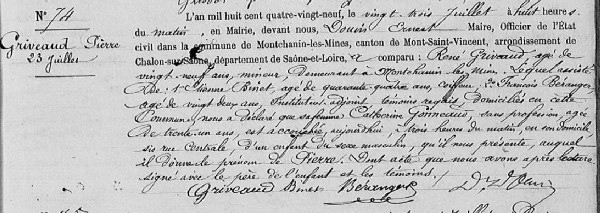 N° 74
Griveaud Pierre
23 Juillet
L'an mil huit cent quatre-vingt-neuf, le vingt trois Juillet à huit heures
du matin, en Mairie, devant nous, Maire, Officier de l'État
civil dans la commune de Montchanin-les-Mines, canton de Mont-Saint-Vincent, arrondissement de
Chalon-sur-Saône, département de Saône-et-Loire, a comparu : René Griveaud, agé de
vingt neuf ans, mineur demeurant à Montchanin les Mines, Lequel assisté
de : 1° Etienne Binet, agé de quarante quatre ans, coiffeur, 2° François Béranger
agé de vingt deux ans, Instituteur adjoint témoins requis, domiciliés en cette
Commune, nous a déclaré que sa femme Catherine Jonneaud, sans profession, agée
de trente un ans, est accouchée, aujourd'hui, à trois heures du matin, en son domicile
sis rue Centrale, d'un enfant du sexe masculin, qu'il nous présente, auquel
il donne le prénom de Pierre. Dont acte que nous avons après lecture
signé avec le père de l'enfant et les témoins.
Griveaud Binet Béranger